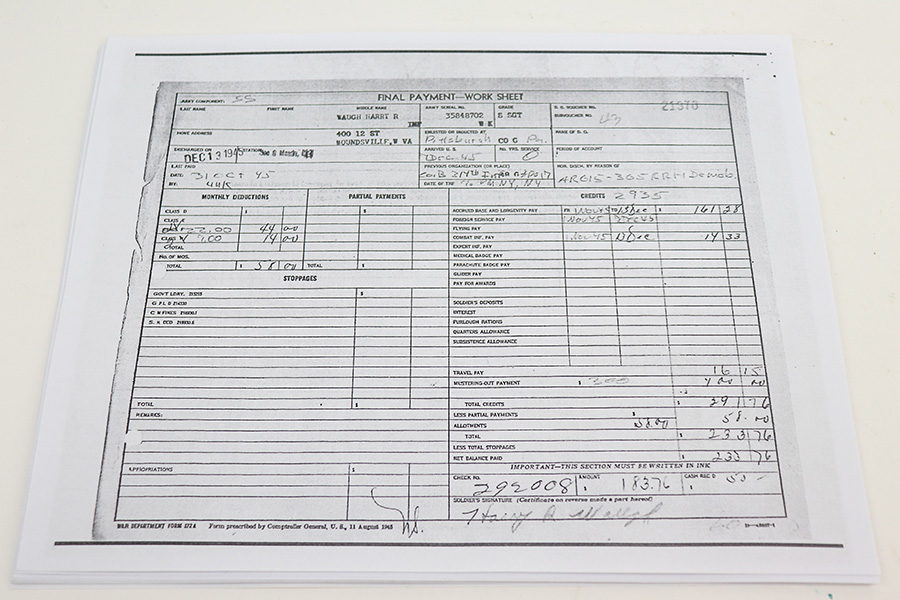 FINAL PAYMENT—WORK SHEET
ARMY COMPONENT: SS
LAST NAME FIRST NAME MIDDLE NAME ARMY SERIAL NO. GRADE D. S. VOUCHER NO. 21370
WAUGH HARRY R 35848702 S SGT SUBVOUCHER NO. 43
HOME ADDRESS 400 12 ST ENLISTED OR INDUCTED AT NAME OF F. O.
MOUNDSVILLE, W VA Pittsburgh CO C Pa.
DISCHARGED ON STATION ARRIVED U. S. NO. YRS. SERVICE PERIOD OF ACCOUNT
DEC 13 1945 Dec-45 0
LAST PAID PREVIOUS ORGANIZATION (OR PLACE) HON. DISCH. BY REASON OF
DATE: 31 Oct 45 Co B 314th AR615-365 RR1-1 Demob.
BY: DATE OF NY, NY
MONTHLY DEDUCTIONS PARTIAL PAYMENTS CREDITS 2935
CLASS D $ $ ACCRUED BASE AND LONGEVITY PAY FR 1 Nov 45 TO 13 Dec $ 161 28
CLASS E FOREIGN SERVICE PAY 1 Nov 45 Dec 45
22.00 44 00 FLYING PAY
CLASS 7.00 14 00 COMBAT INF. PAY 1 Nov 45 13 Dec 14 33
TOTAL EXPERT INF. PAY
NO. OF MOS. MEDICAL BADGE PAY
TOTAL $ 58 00 TOTAL $ PARACHUTE BADGE PAY
STOPPAGES GLIDER PAY
PAY FOR AWARDS
GOVT LDRY. $
G P L D SOLDIER'S DEPOSITS
C M FINES INTEREST
FURLOUGH RATIONS
QUARTERS ALLOWANCE
SUBSISTENCE ALLOWANCE
TRAVEL PAY 16 15
MUSTERING-OUT PAYMENT $ 300 00
TOTAL $ TOTAL CREDITS $ 291 76
REMARKS: LESS PARTIAL PAYMENTS $ 58.00
ALLOTMENTS 58.00
TOTAL $ 233 76
LESS TOTAL STOPPAGES
NET BALANCE PAID $ 233 76
APPROPRIATIONS $ IMPORTANT—THIS SECTION MUST BE WRITTEN IN INK
CHECK NO. 292008 AMOUNT $ 183.76 CASH REC'D $ 50 -
SOLDIER'S SIGNATURE (Certificate on reverse made a part hereof)
Harry R Waugh
WAR DEPARTMENT FORM 372A Form prescribed by Comptroller General, U. S., 11 August 1945